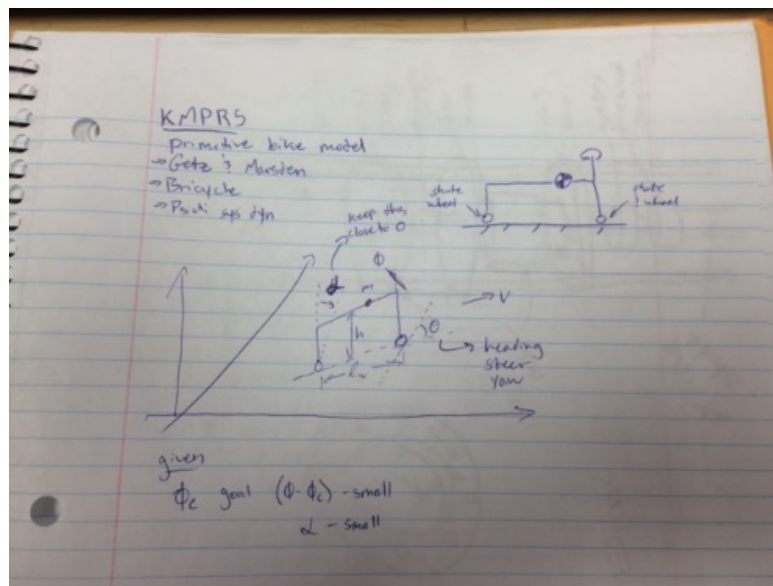 KMPRS
primitive bike model
→ Getz & Marsden
→ Bricycle
sys dyn
skate
wheel
skate
wheel
keep this
close to 0
α
m
ϕ
h
v
θ
→ heading
steer
Yaw
given
ϕc goal (ϕ-ϕc) - small
α - small